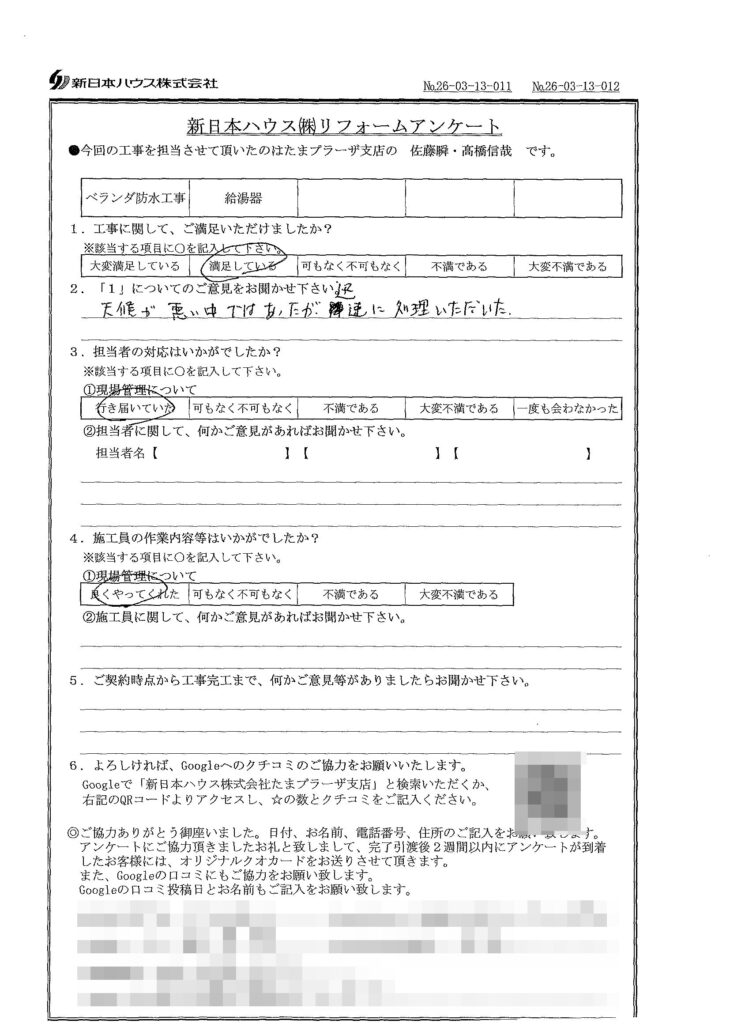 新日本ハウス株式会社
№26-03-13-011 №26-03-13-012
新日本ハウス㈱リフォームアンケート
●今回の工事を担当させて頂いたのはたまプラーザ支店の 佐藤瞬・髙橋信哉 です。
ベランダ防水工事 給湯器
1．工事に関して、ご満足いただけましたか？
※該当する項目に○を記入して下さい。
大変満足している 満足している 可もなく不可もなく 不満である 大変不満である
2．「1」についてのご意見をお聞かせ下さい
天候が悪い中ではあったが迅速に処理いただいた.
3．担当者の対応はいかがでしたか？
※該当する項目に○を記入して下さい。
①現場管理について
行き届いていた 可もなく不可もなく 不満である 大変不満である 一度も会わなかった
②担当者に関して、何かご意見があればお聞かせ下さい。
担当者名【 】【 】【 】
4．施工員の作業内容等はいかがでしたか？
※該当する項目に○を記入して下さい。
①現場管理について
良くやってくれた 可もなく不可もなく 不満である 大変不満である
②施工員に関して、何かご意見があればお聞かせ下さい。
5．ご契約時点から工事完工まで、何かご意見等がありましたらお聞かせ下さい。
6．よろしければ、Googleへのクチコミのご協力をお願いいたします。
Googleで「新日本ハウス株式会社たまプラーザ支店」と検索いただくか、
右記のQRコードよりアクセスし、☆の数とクチコミをご記入ください。
◎ご協力ありがとう御座いました。日付、お名前、電話番号、住所のご記入をお願い致します。
アンケートにご協力頂きましたお礼と致しまして、完了引渡後２週間以内にアンケートが到着
したお客様には、オリジナルクオカードをお送りさせて頂きます。
また、Googleの口コミにもご協力をお願い致します。
Googleの口コミ投稿日とお名前もご記入をお願い致します。